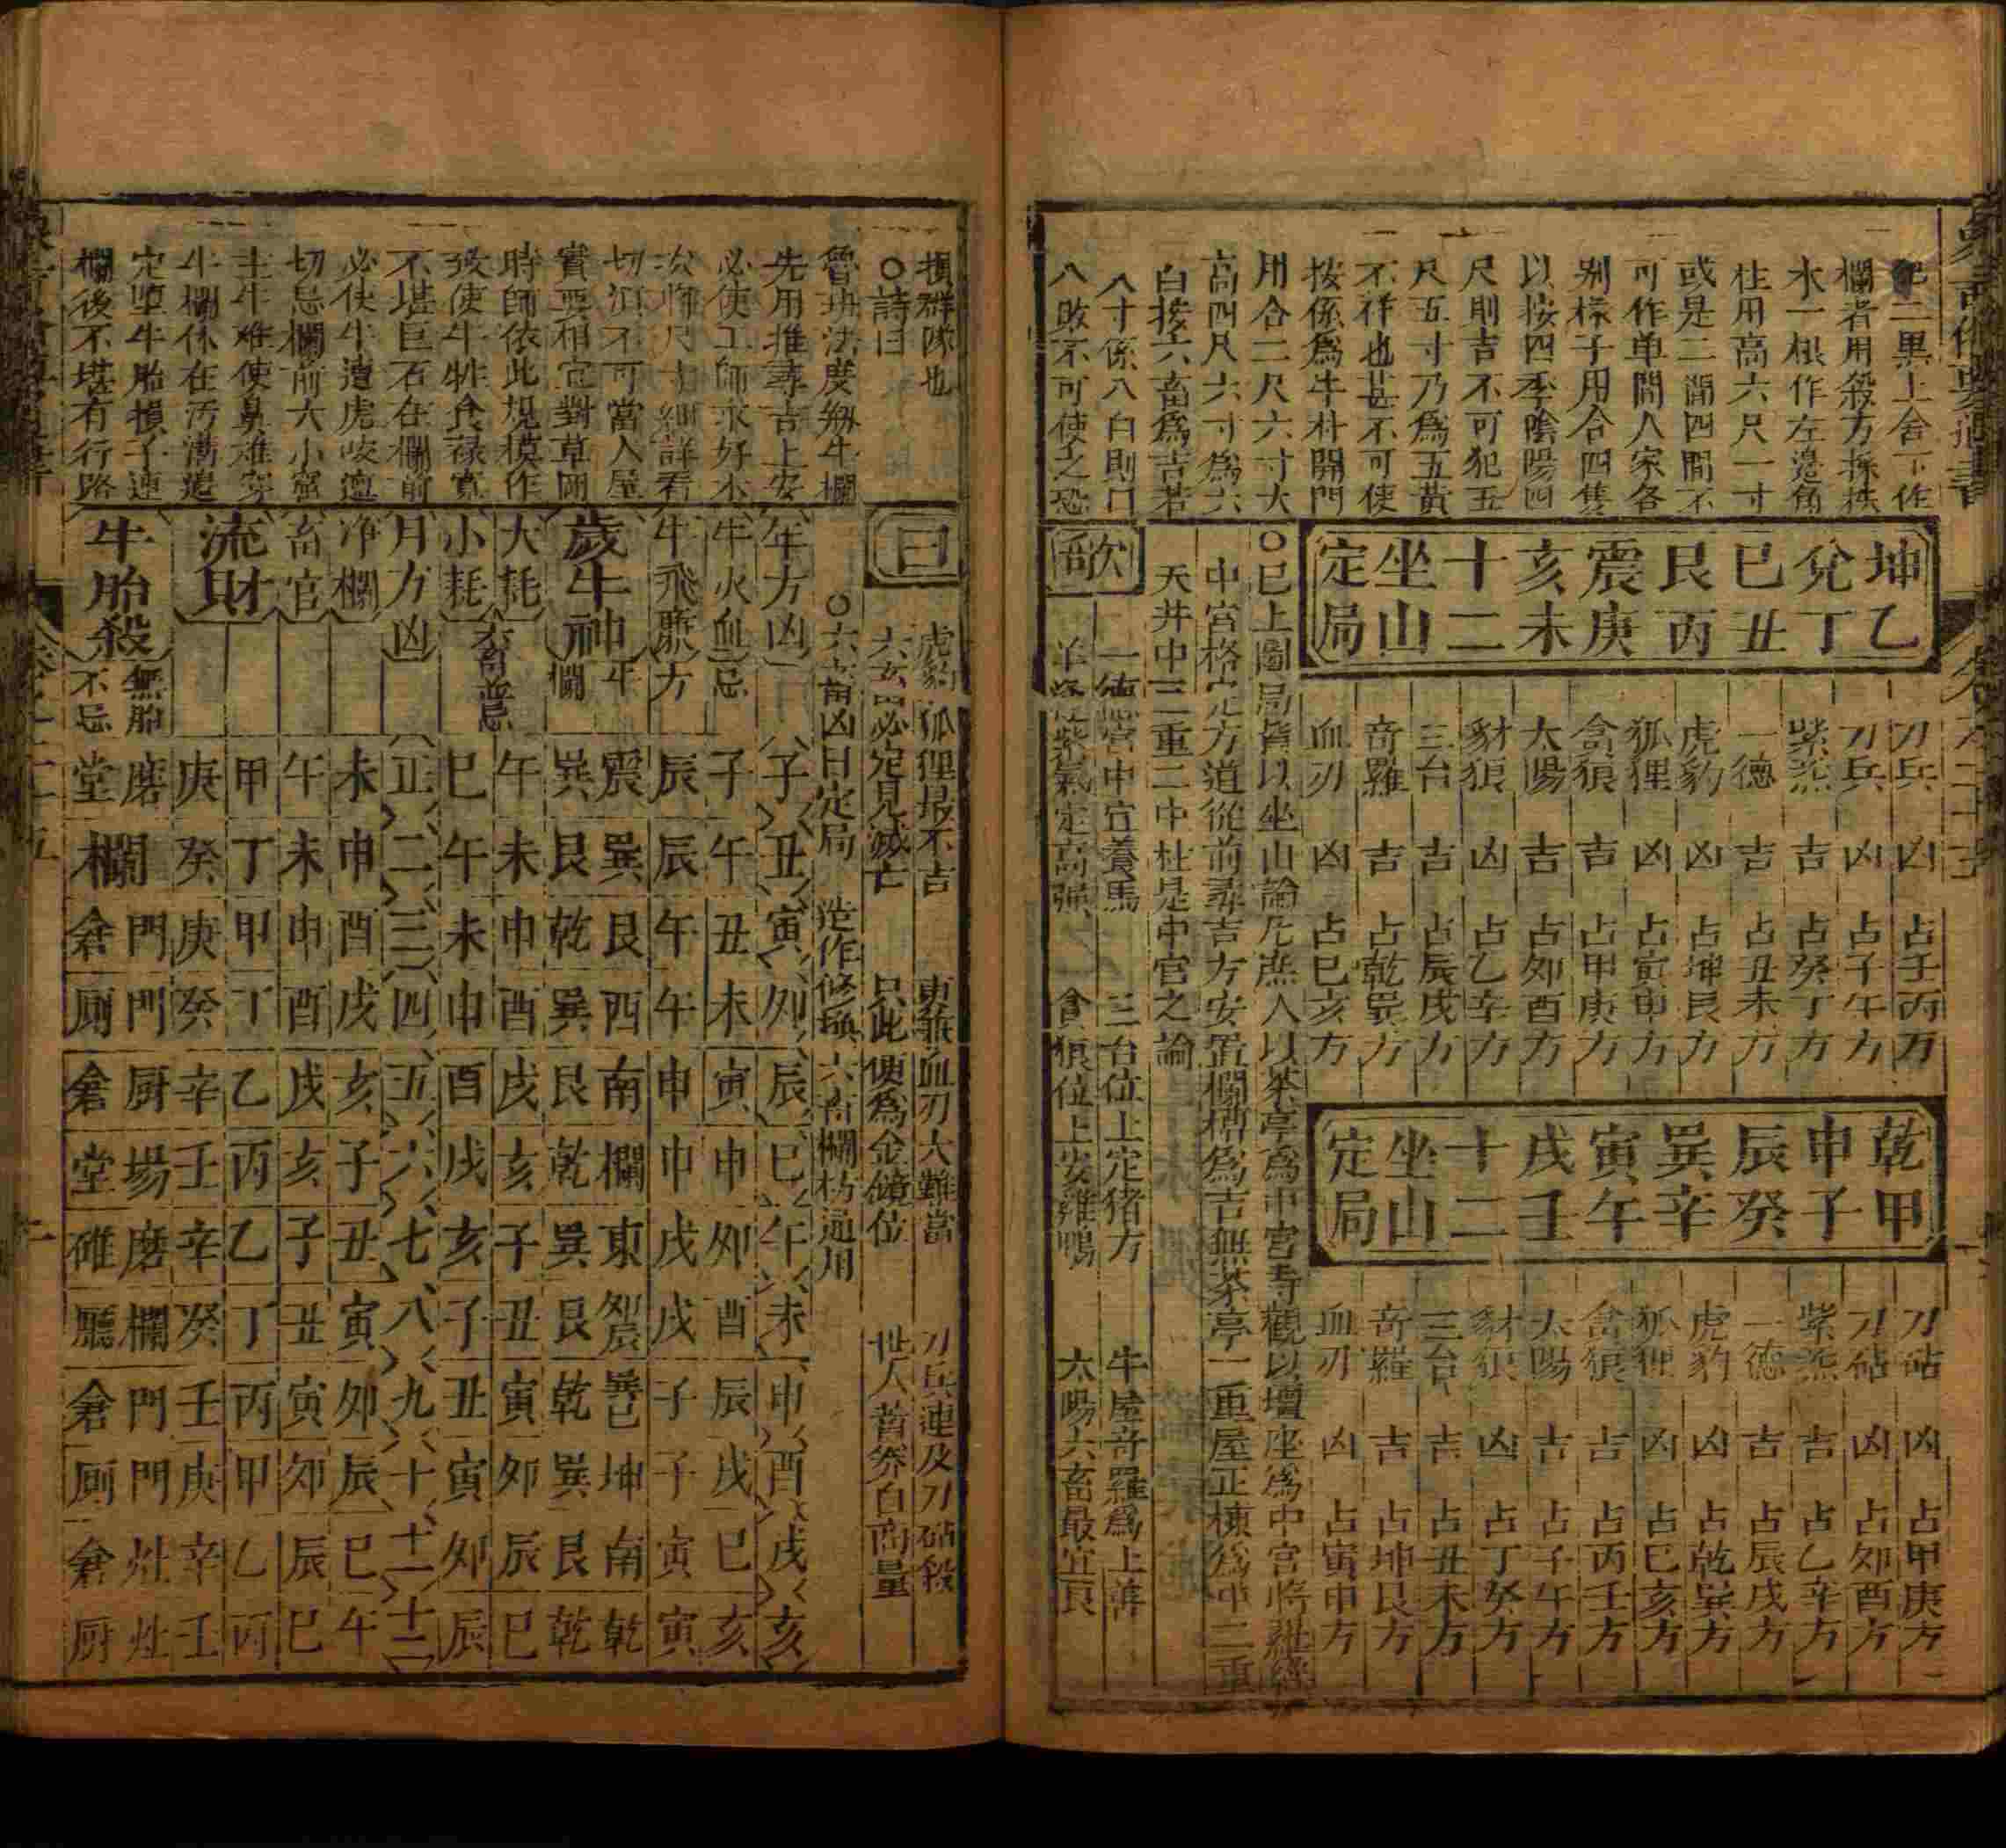 犯二黑上舍下作
欄者用殺方採秩
木一根作左邊角
柱用高六尺一寸
或是二間四間不
可作单間人家各
别樣子用合四隻
以按四季陰陽四
尺則吉不可犯五
尺五寸乃為五黃
不祥也甚不可使
按係為牛村開門
用合二尺六寸大
高四尺六寸為六
白按六畜為吉若
八寸係八白則口
八敗不可使之恐
坤乙
兊丁
巳丑
艮丙
震庚
亥未
十二
坐山
定局
刀兵 凶 占壬丙方
刀兵 凶 占子午方
紫炁 吉 占癸丁方
一德 吉 占丑未方
虎豹 凶 占坤艮方
狐狸 凶 占寅申方
貪狼 吉 占甲庚方
太陽 吉 占夘酉方
豺狼 凶 占乙辛方
三台 吉 占辰戌方
竒羅 吉 占乾巽方
血刃 凶 占巳亥方
乾甲
申子
辰癸
巽辛
寅午
戌壬
十二
坐山
定局
刀砧 凶 占甲庚方
刀砧 凶 占夘酉方
紫炁 吉 占乙辛方
一德 吉 占辰戌方
虎豹 凶 占乾巽方
狐狸 凶 占巳亥方
貪狼 吉 占丙壬方
太陽 吉 占子午方
豺狼 凶 占丁癸方
三台 吉 占丑未方
竒羅 吉 占坤艮方
血刃 凶 占寅申方
○巳上圖局皆以坐山論凡庶人以茶亭為中宮寺觀以壇座為中宮將羅經
中宮格定方道從前尋吉方安置欄槽為吉無茶亭一重屋正棟為中二重
天井中三重二中柱是中官之論
歌
一德宮中宜養馬 三台位上定猪方 牛屋竒羅為上善
羊棧紫氣定高强 貪狼位上安雞鴨 太陽六畜最宜良
損群隊也
○詩曰
魯班法度剏牛欄
先用推尋吉上安
必使工師求好木
次將尺寸細詳看
切須不可當人屋
實要相宜對草岡
時師依此規模作
致使牛牲食祿寛
不堪巨石在欄前
必使牛遭虎咬邅
切忌欄前大小窰
主牛难使鼻难穿
牛欄休在汚溝邉
定墮牛胎損子連
欄後不堪有行路
曰
虎豹狐狸最不吉 更兼血刃大難當 刀兵連及刀砧殺
六玄冐必定見滅亡 只此便為金鏡位 世人着筭自啇量
○六玄畜凶日定局 造作修換六畜欄枋通用
年方凶 子 丑 寅 夘 辰 巳 午 未 申 酉 戌 亥
牛火血忌 子 午 丑 未 寅 申 夘 酉 辰 戌 巳 亥
牛飛廉方 辰 辰 午 午 申 巾 戌 戌 子 子 寅 寅
歲牛神 牛欄 震巽 巽艮 艮乾 西巽 南艮 欄乾 東巽 夘辰艮 巽巳乾 坤巽 南艮 乾乾
大耗 午 未 申 酉 戌 亥 子 丑 寅 夘 辰 巳
小耗 六畜並忌 巳 午 未 申 酉 戌 亥 子 丑 寅 夘 辰
月方凶 正 二 三 四 五 六 七 八 九 十 十一 十二
净欄 未 申 酉 戌 亥 子 丑 寅 夘 辰 巳 午
畜官 午 未 申 酉 戌 亥 子 丑 寅 夘 辰 巳
流財 甲庚 丁癸 甲庚 丁癸 乙辛 丙壬 乙辛 丁癸 丙壬 甲庚 乙辛 丙壬
牛胎殺 無胎不忌 磨堂 欄 門倉 門厠 厨倉 場堂 磨碓 欄廳 門倉 門厠 灶倉 灶厨